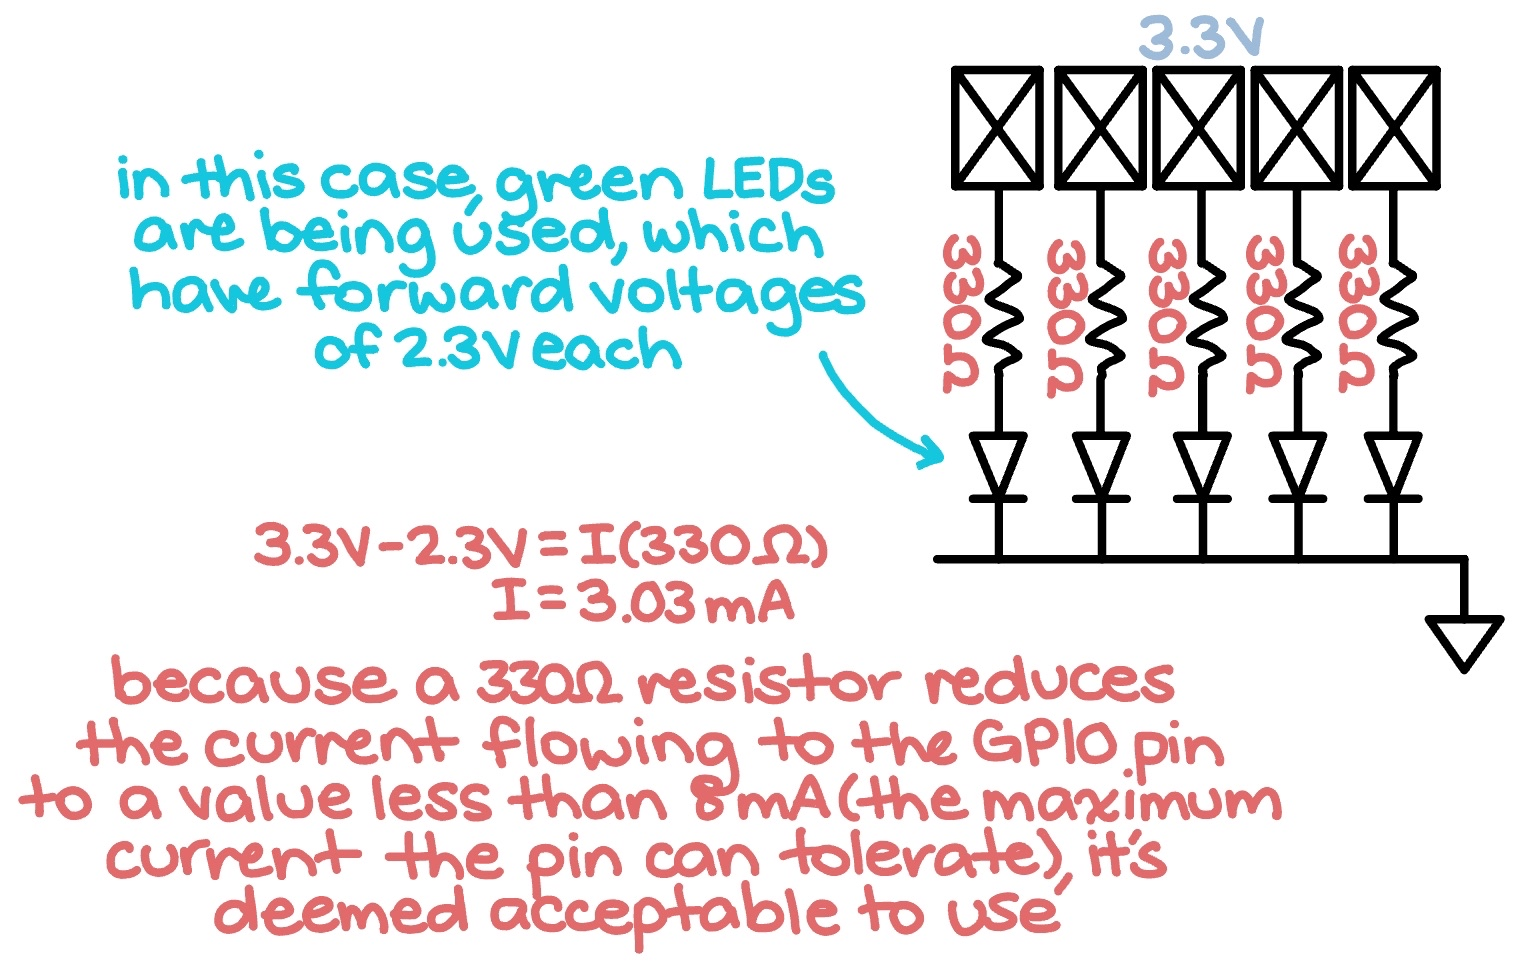 3.3V
in this case, green LEDs
are being used, which
have forward voltages
of 2.3V each
330Ω
330Ω
330Ω
330Ω
330Ω
3.3V-2.3V = I(330Ω)
I = 3.03mA
because a 330Ω resistor reduces
the current flowing to the GPIO pin
to a value less than 8mA (the maximum
current the pin can tolerate), it's
deemed acceptable to use